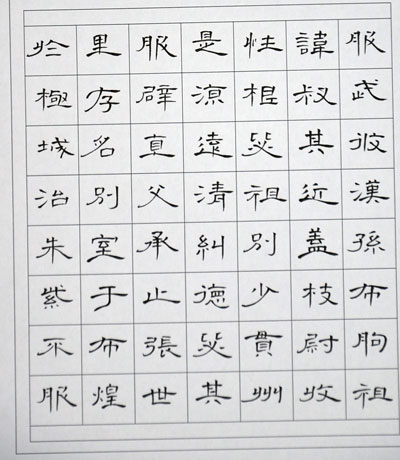 服武彼漢孫布朐祖
諱叔其近蓋枝尉收
性根祖別少貫州
是涼遠清糾德其
服辟直父承止張世
里存名別室于布煌
於極城治朱紫不服